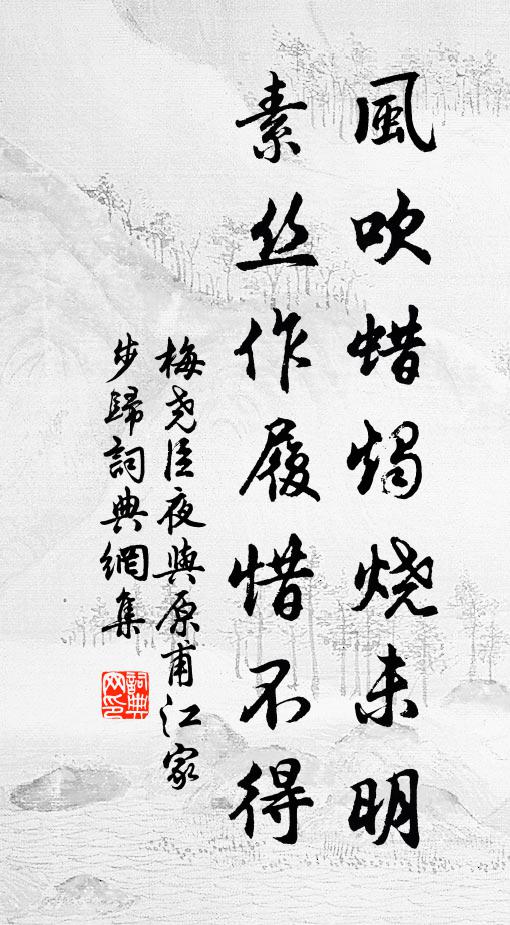 風吹蜡燭烧未明
素丝作履惜不得
梅尧臣夜與原甫江家
步歸詞典網集
詞典
网印